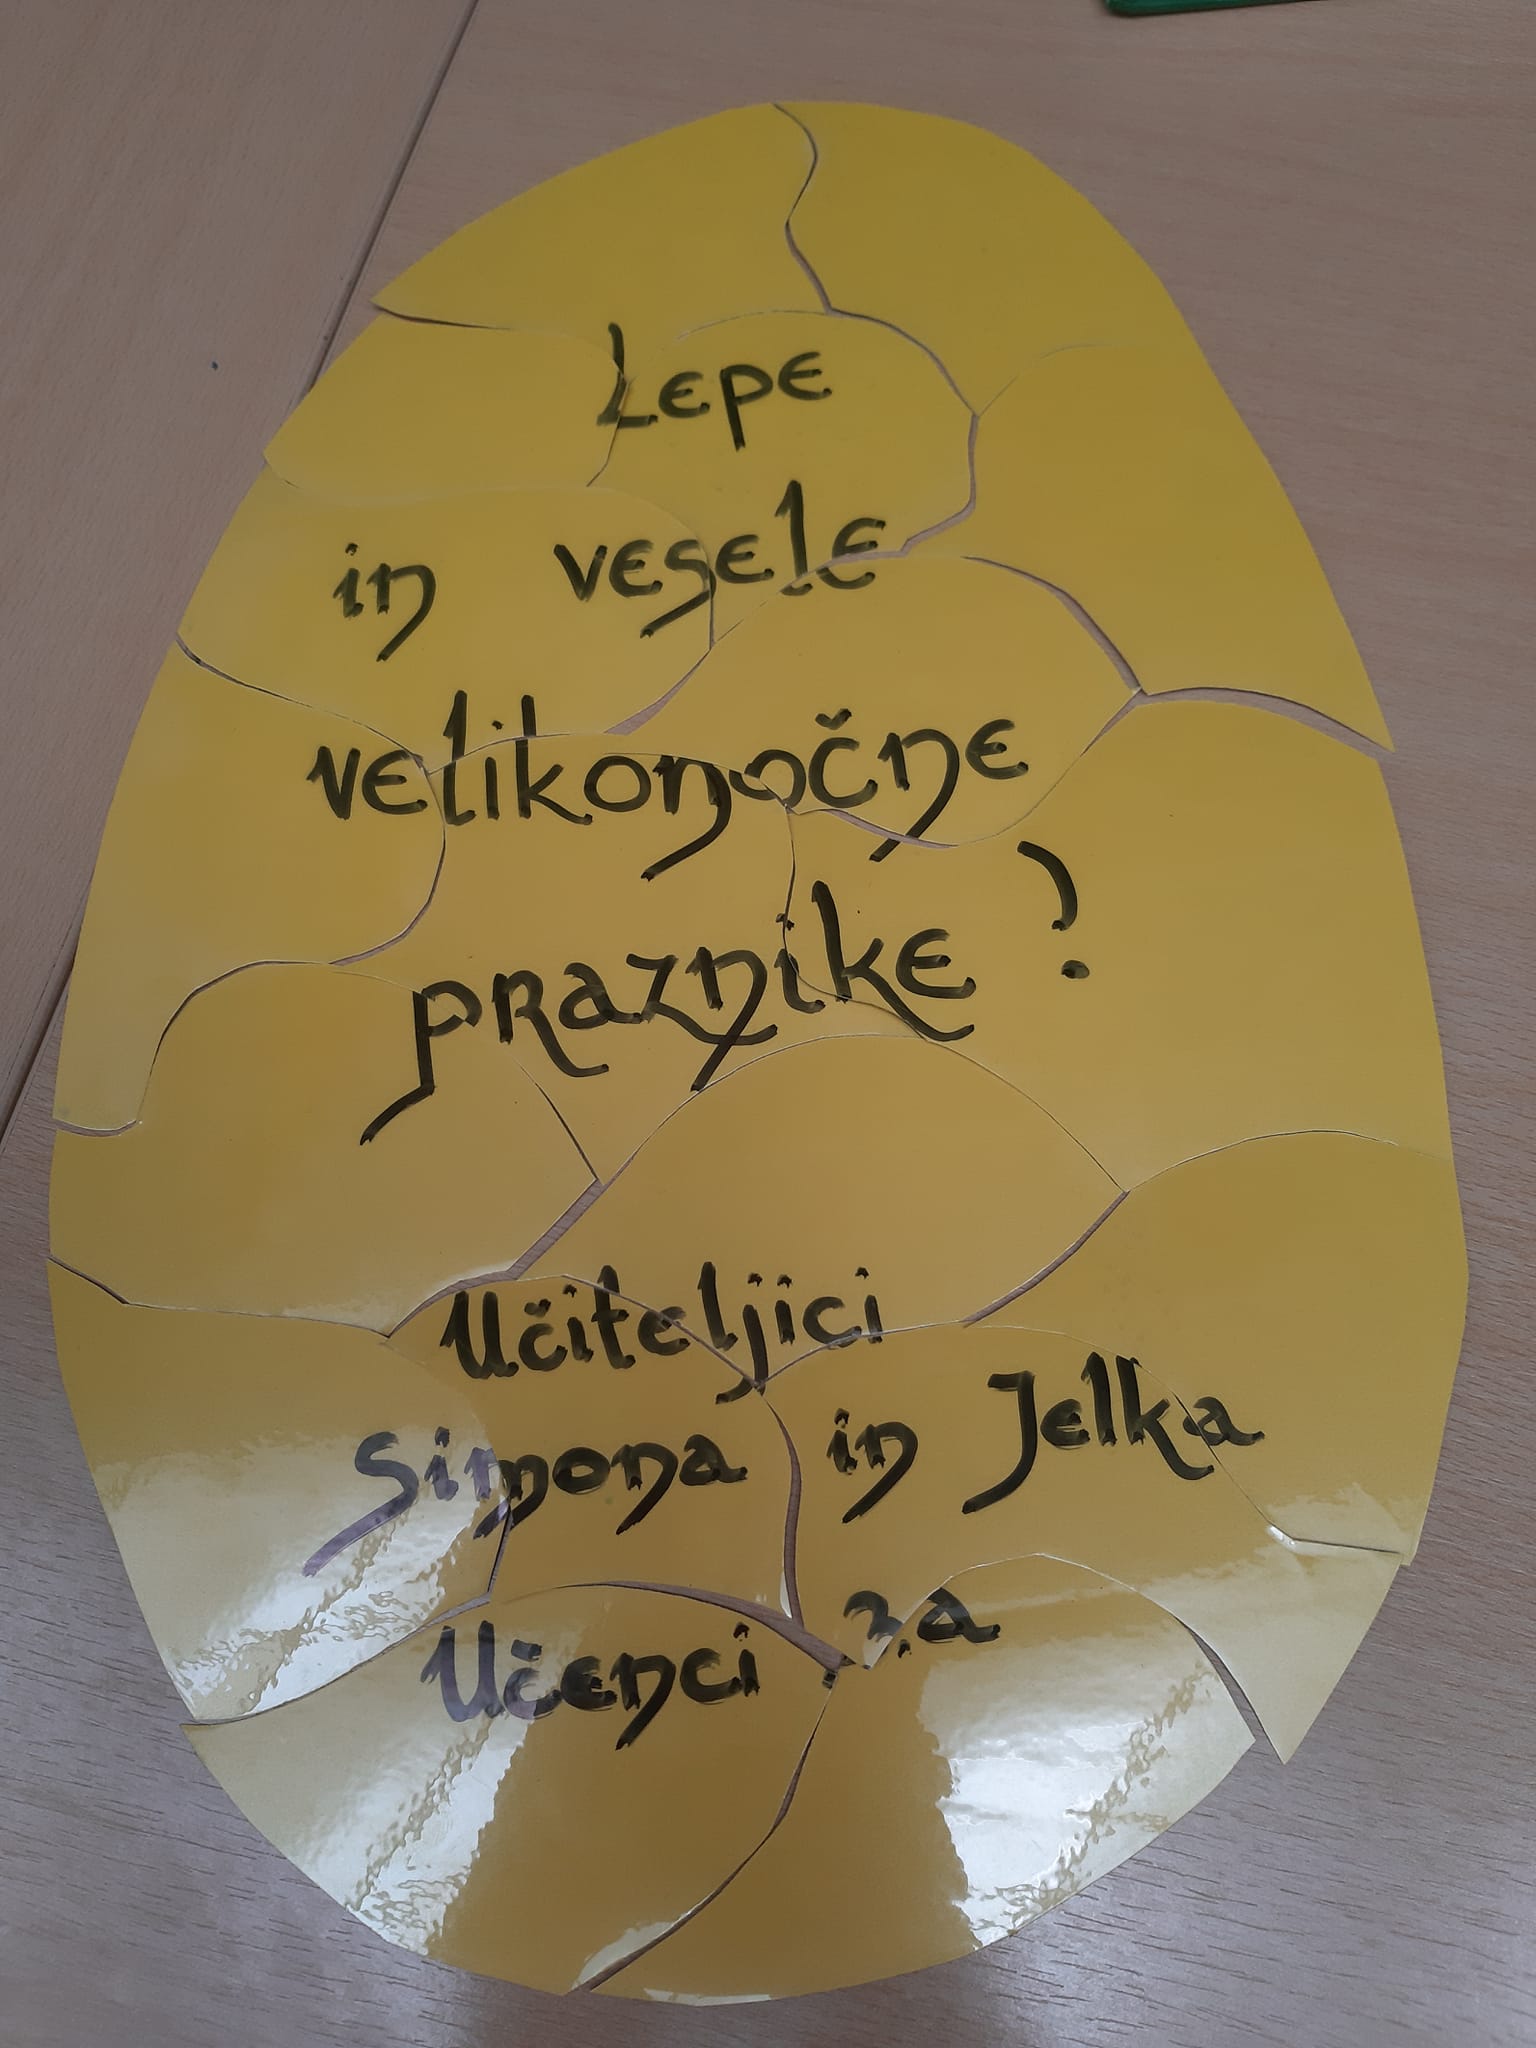 Lepe
in vesele
velikonočne
praznike!
Učiteljici
Simona in Jelka
Učenci 2.a